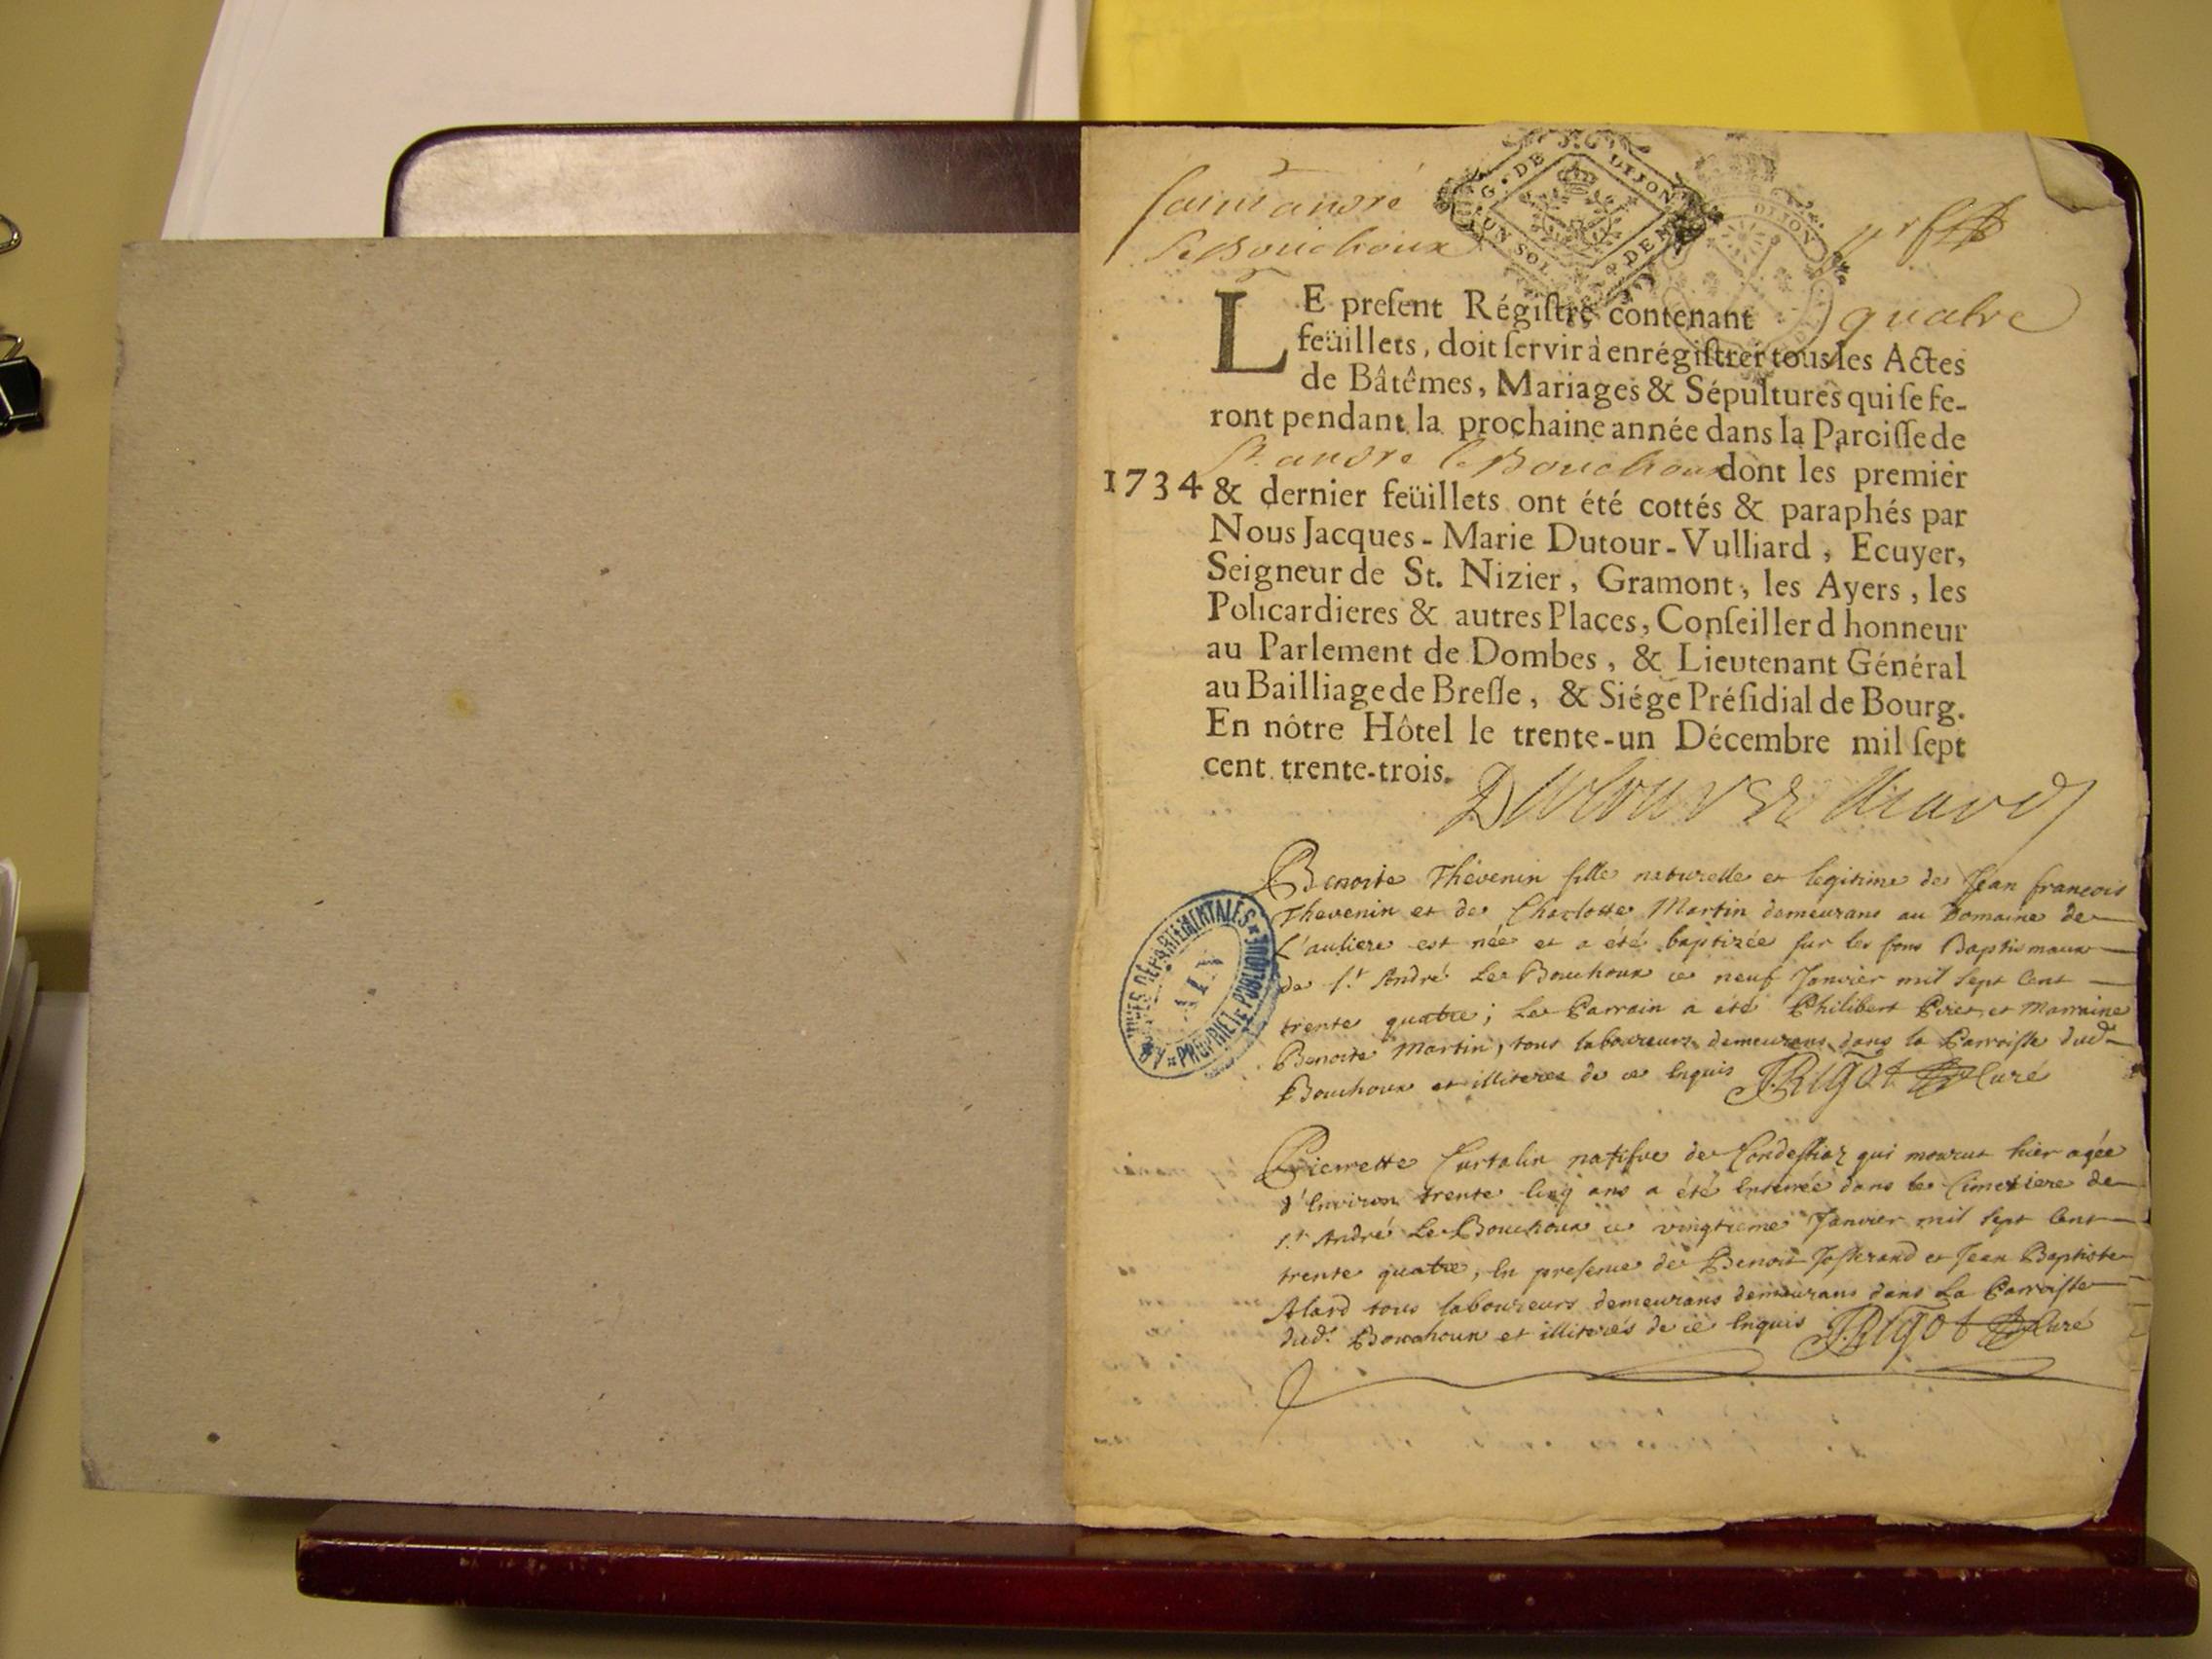 saint andré
le Bouchoux
G. DE DIJON
UN SOL 4 DE
DIJON
LE preſent Régiſtre contenant quatre
feüillets, doit ſervir à enrégiſtrer tous les Actes
de Bâtêmes, Mariages & Sépultures qui ſe fe-
ront pendant la prochaine année dans la Paroiſſe de
St. andré le Bouchoux dont les premier
1734 & dernier feüillets ont été cottés & paraphés par
Nous Jacques-Marie Dutour-Vulliard, Ecuyer,
Seigneur de St. Nizier, Gramont, les Ayers, les
Policardieres & autres Places, Conſeiller d honneur
au Parlement de Dombes, & Lieutenant Général
au Bailliage de Breſſe, & Siége Préſidial de Bourg.
En nôtre Hôtel le trente-un Décembre mil ſept
cent trente-trois.
Benoite Thevenin fille naturelle et legitime de Jean francois
Thevenin et de Charlotte Martin demeurans au Domaine de
L'auliere est née et a été baptizée sur les fons Baptismaux
de St. André Le Bouchoux ce neuf Janvier mil sept Cent
trente quatre; Le Parrain a été Philibert et Marraine
Benoite Martin, tous laboureurs demeurans dans la Parroisse dud.
Bouchoux et illiteres de ce Enquis J. Rigot Curé
ARCHIVES DÉPARTEMENTALES
AIN
PROPRIÉTÉ PUBLIQUE
Pierrette Curtalin natifve de Condessiaz qui mourut hier agée
d'Environ trente Cinq ans a été Enterrée dans le Cimetiere de
St. André Le Bouchoux ce vingtieme Janvier mil sept Cent
trente quatre, En presence de Benoit Josserand et Jean Baptiste
Alard tous laboureurs demeurans demeurans dans La Parroisse
dud. Bouchoux et illiterés de ce Enquis J. Rigot Curé